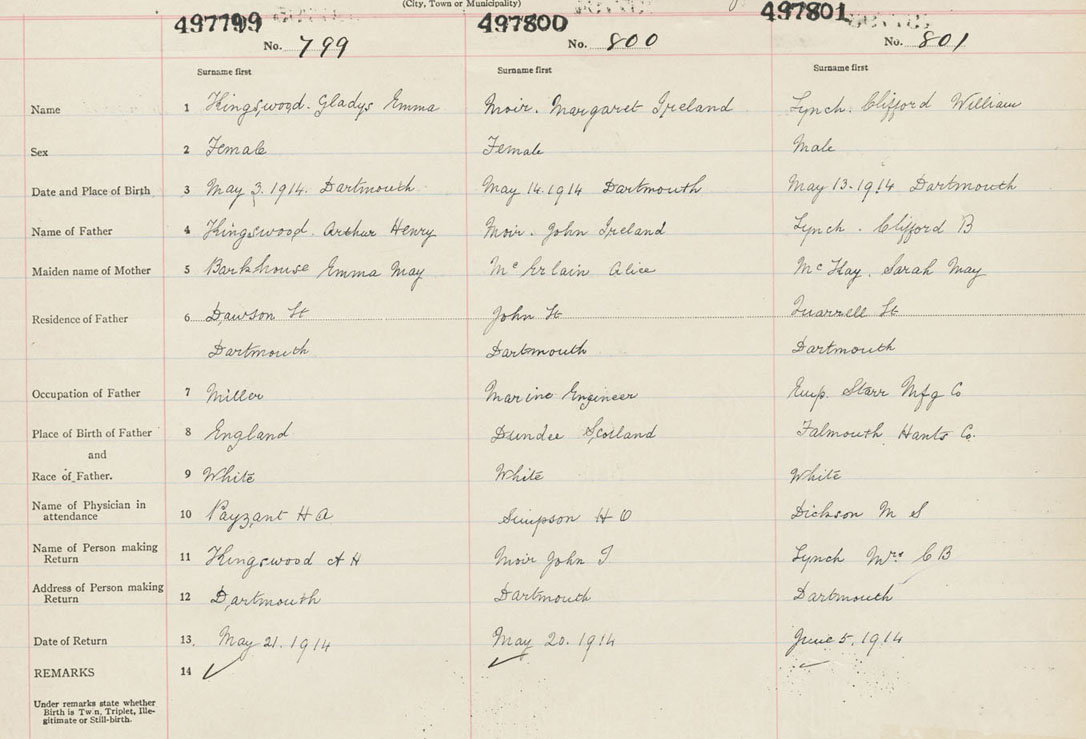 (City, Town or Municipality)
497799 497800 497801
No. 799 No. 800 No. 801
Surname first Surname first Surname first
Name 1 Kingswood. Gladys Emma Moir. Margaret Ireland Lynch. Clifford William
Sex 2 Female Female Male
Date and Place of Birth 3 May 3. 1914. Dartmouth May 14. 1914 Dartmouth May 13. 1914 Dartmouth
Name of Father 4 Kingswood. Arthur Henry Moir. John Ireland Lynch. Clifford B
Maiden name of Mother 5 Barkhouse Emma May McErlain Alice McKay. Sarah May
Residence of Father 6 Dawson St John St Quarrell St
Dartmouth Dartmouth Dartmouth
Occupation of Father 7 Miller Marine Engineer Emp. Starr Mfg Co
Place of Birth of Father 8 England Dundee Scotland Falmouth Hants Co.
and
Race of Father. 9 White White White
Name of Physician in
attendance 10 Payzant H A Simpson H O Dickson M S
Name of Person making
Return 11 Kingswood A H Moir John I Lynch Mrs C B
Address of Person making
Return 12 Dartmouth Dartmouth Dartmouth
Date of Return 13. May 21. 1914 May 20. 1914 June 5. 1914
REMARKS 14
Under remarks state whether
Birth is Twin, Triplet, Ille-
gitimate or Still-birth.